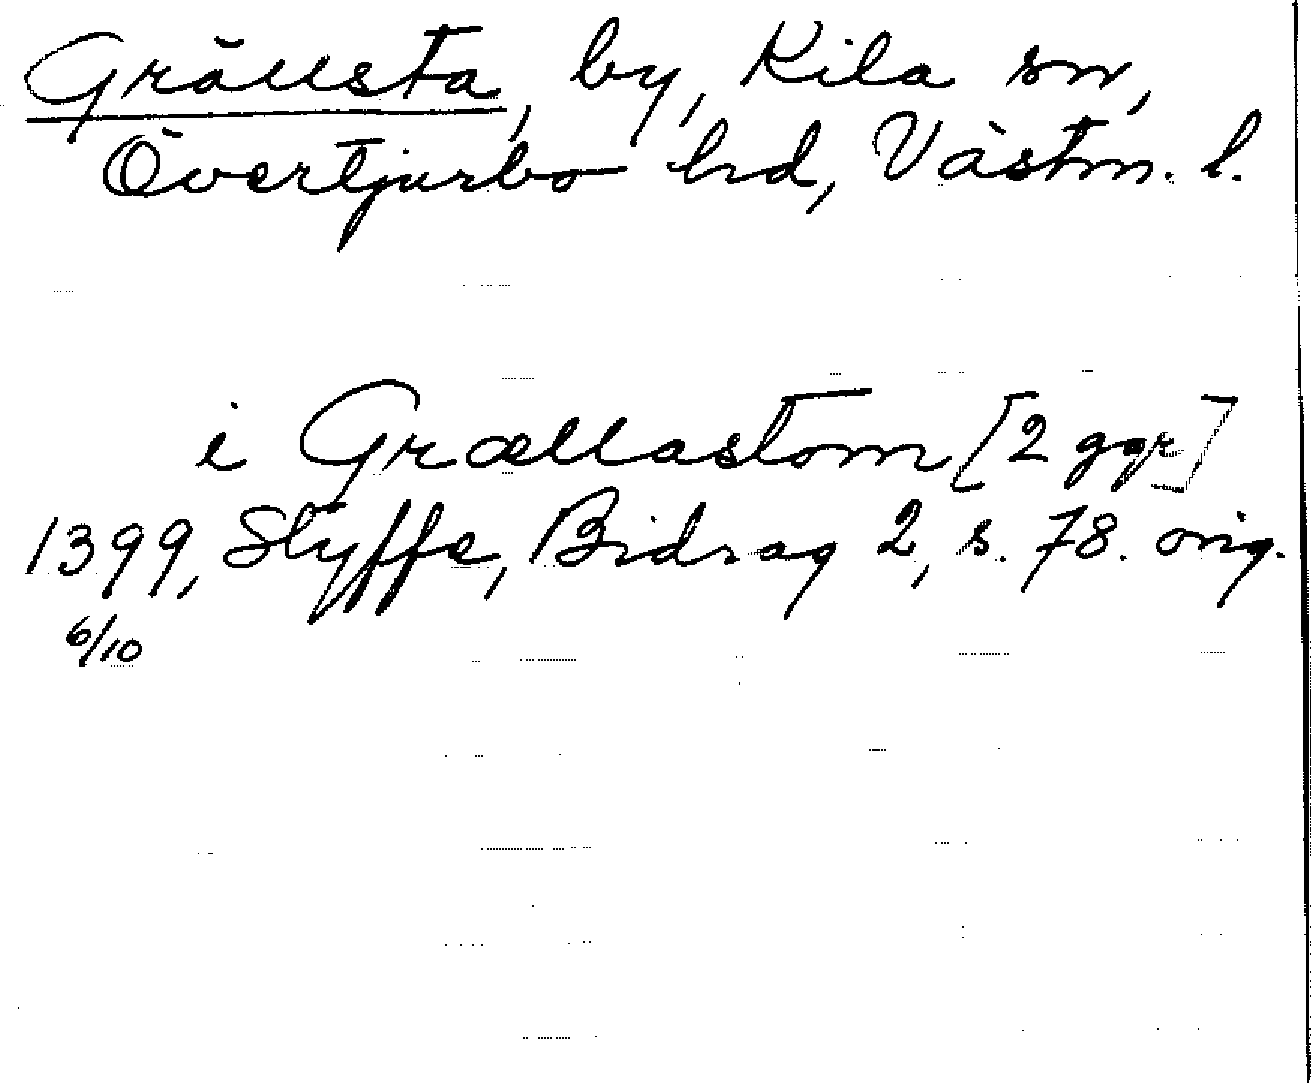 Grällsta, by, Kila sn,
Övertjurbo hrd, Västm. l.
i Grællastom [2 ggr]
1399, Styffe, Bidrag 2, s. 78. orig.
6/10